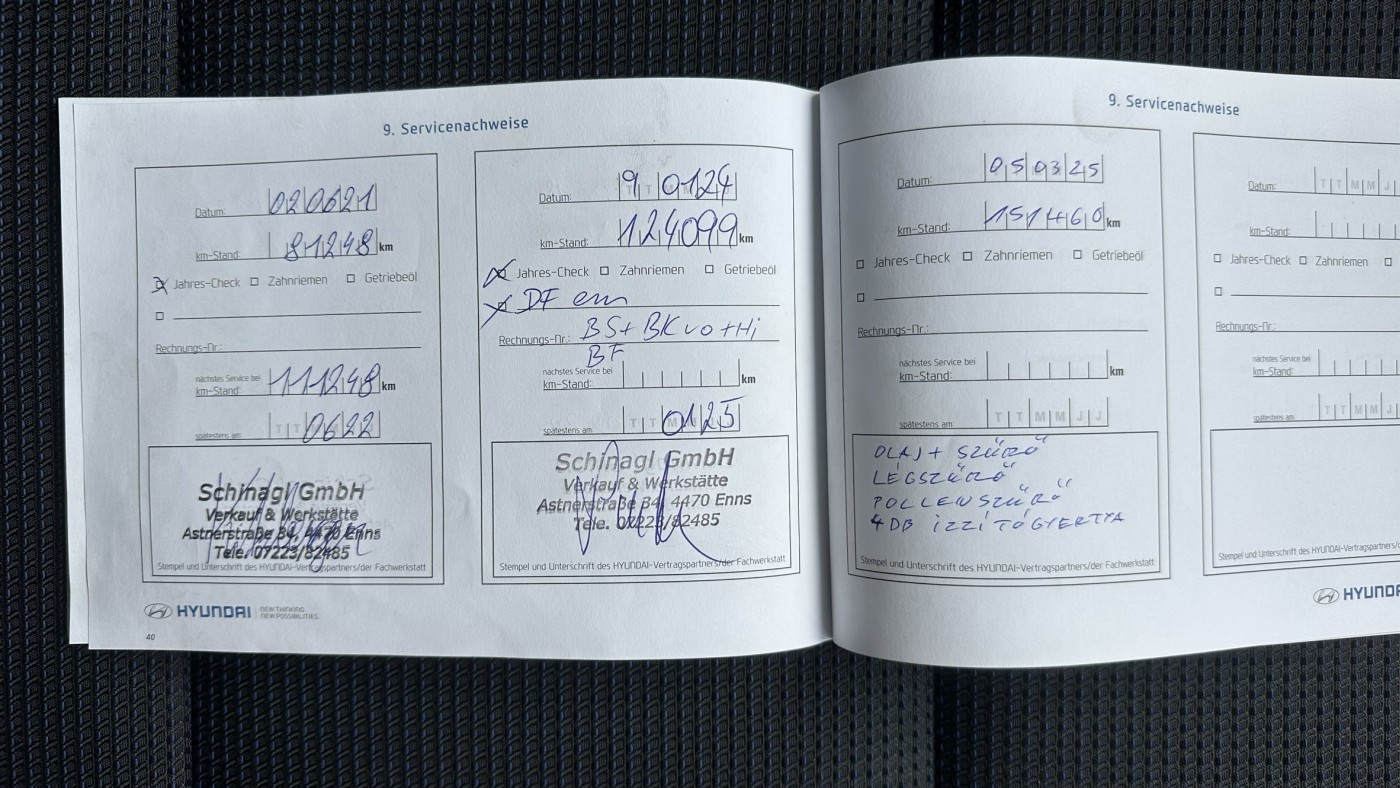 9. Servicenachweise
Datum: 020621
km-Stand: 81248 km
Jahres-Check Zahnriemen Getriebeöl
Rechnungs-Nr.:
nächstes Service bei
km-Stand: 111248 km
spätestens am: T T 0622
Schinagl GmbH
Verkauf & Werkstätte
Astnerstraße 34, 4470 Enns
Tele. 07223/82485
Stempel und Unterschrift des HYUNDAI-Vertragspartners/der Fachwerkstatt
HYUNDAI NEW THINKING.
NEW POSSIBILITIES.
40
Datum: 9 0124
km-Stand: 124099 km
Jahres-Check Zahnriemen Getriebeöl
DF em
Rechnungs-Nr.: BS+ BK vo + Hi
BF
nächstes Service bei
km-Stand: km
spätestens am: T T 0125
Schinagl GmbH
Verkauf & Werkstätte
Astnerstraße 34, 4470 Enns
Tele. 07223/82485
Stempel und Unterschrift des HYUNDAI-Vertragspartners/der Fachwerkstatt
9. Servicenachweise
Datum: 050325
km-Stand: 151460 km
Jahres-Check Zahnriemen Getriebeöl
Rechnungs-Nr.:
nächstes Service bei
km-Stand: km
spätestens am: T T M M J J
OLAJ + SZŰRŐ
LÉGSZŰRŐ
POLLENSZŰRŐ
4 DB IZZÍTÓGYERTYA
Stempel und Unterschrift des HYUNDAI-Vertragspartners/der Fachwerkstatt
Datum: T T M M J
km-Stand:
Jahres-Check Zahnriemen
Rechnungs-Nr.:
nächstes Service bei
km-Stand:
spätestens am: T T M M J
Stempel und Unterschrift des HYUNDAI-Vertragspartners/